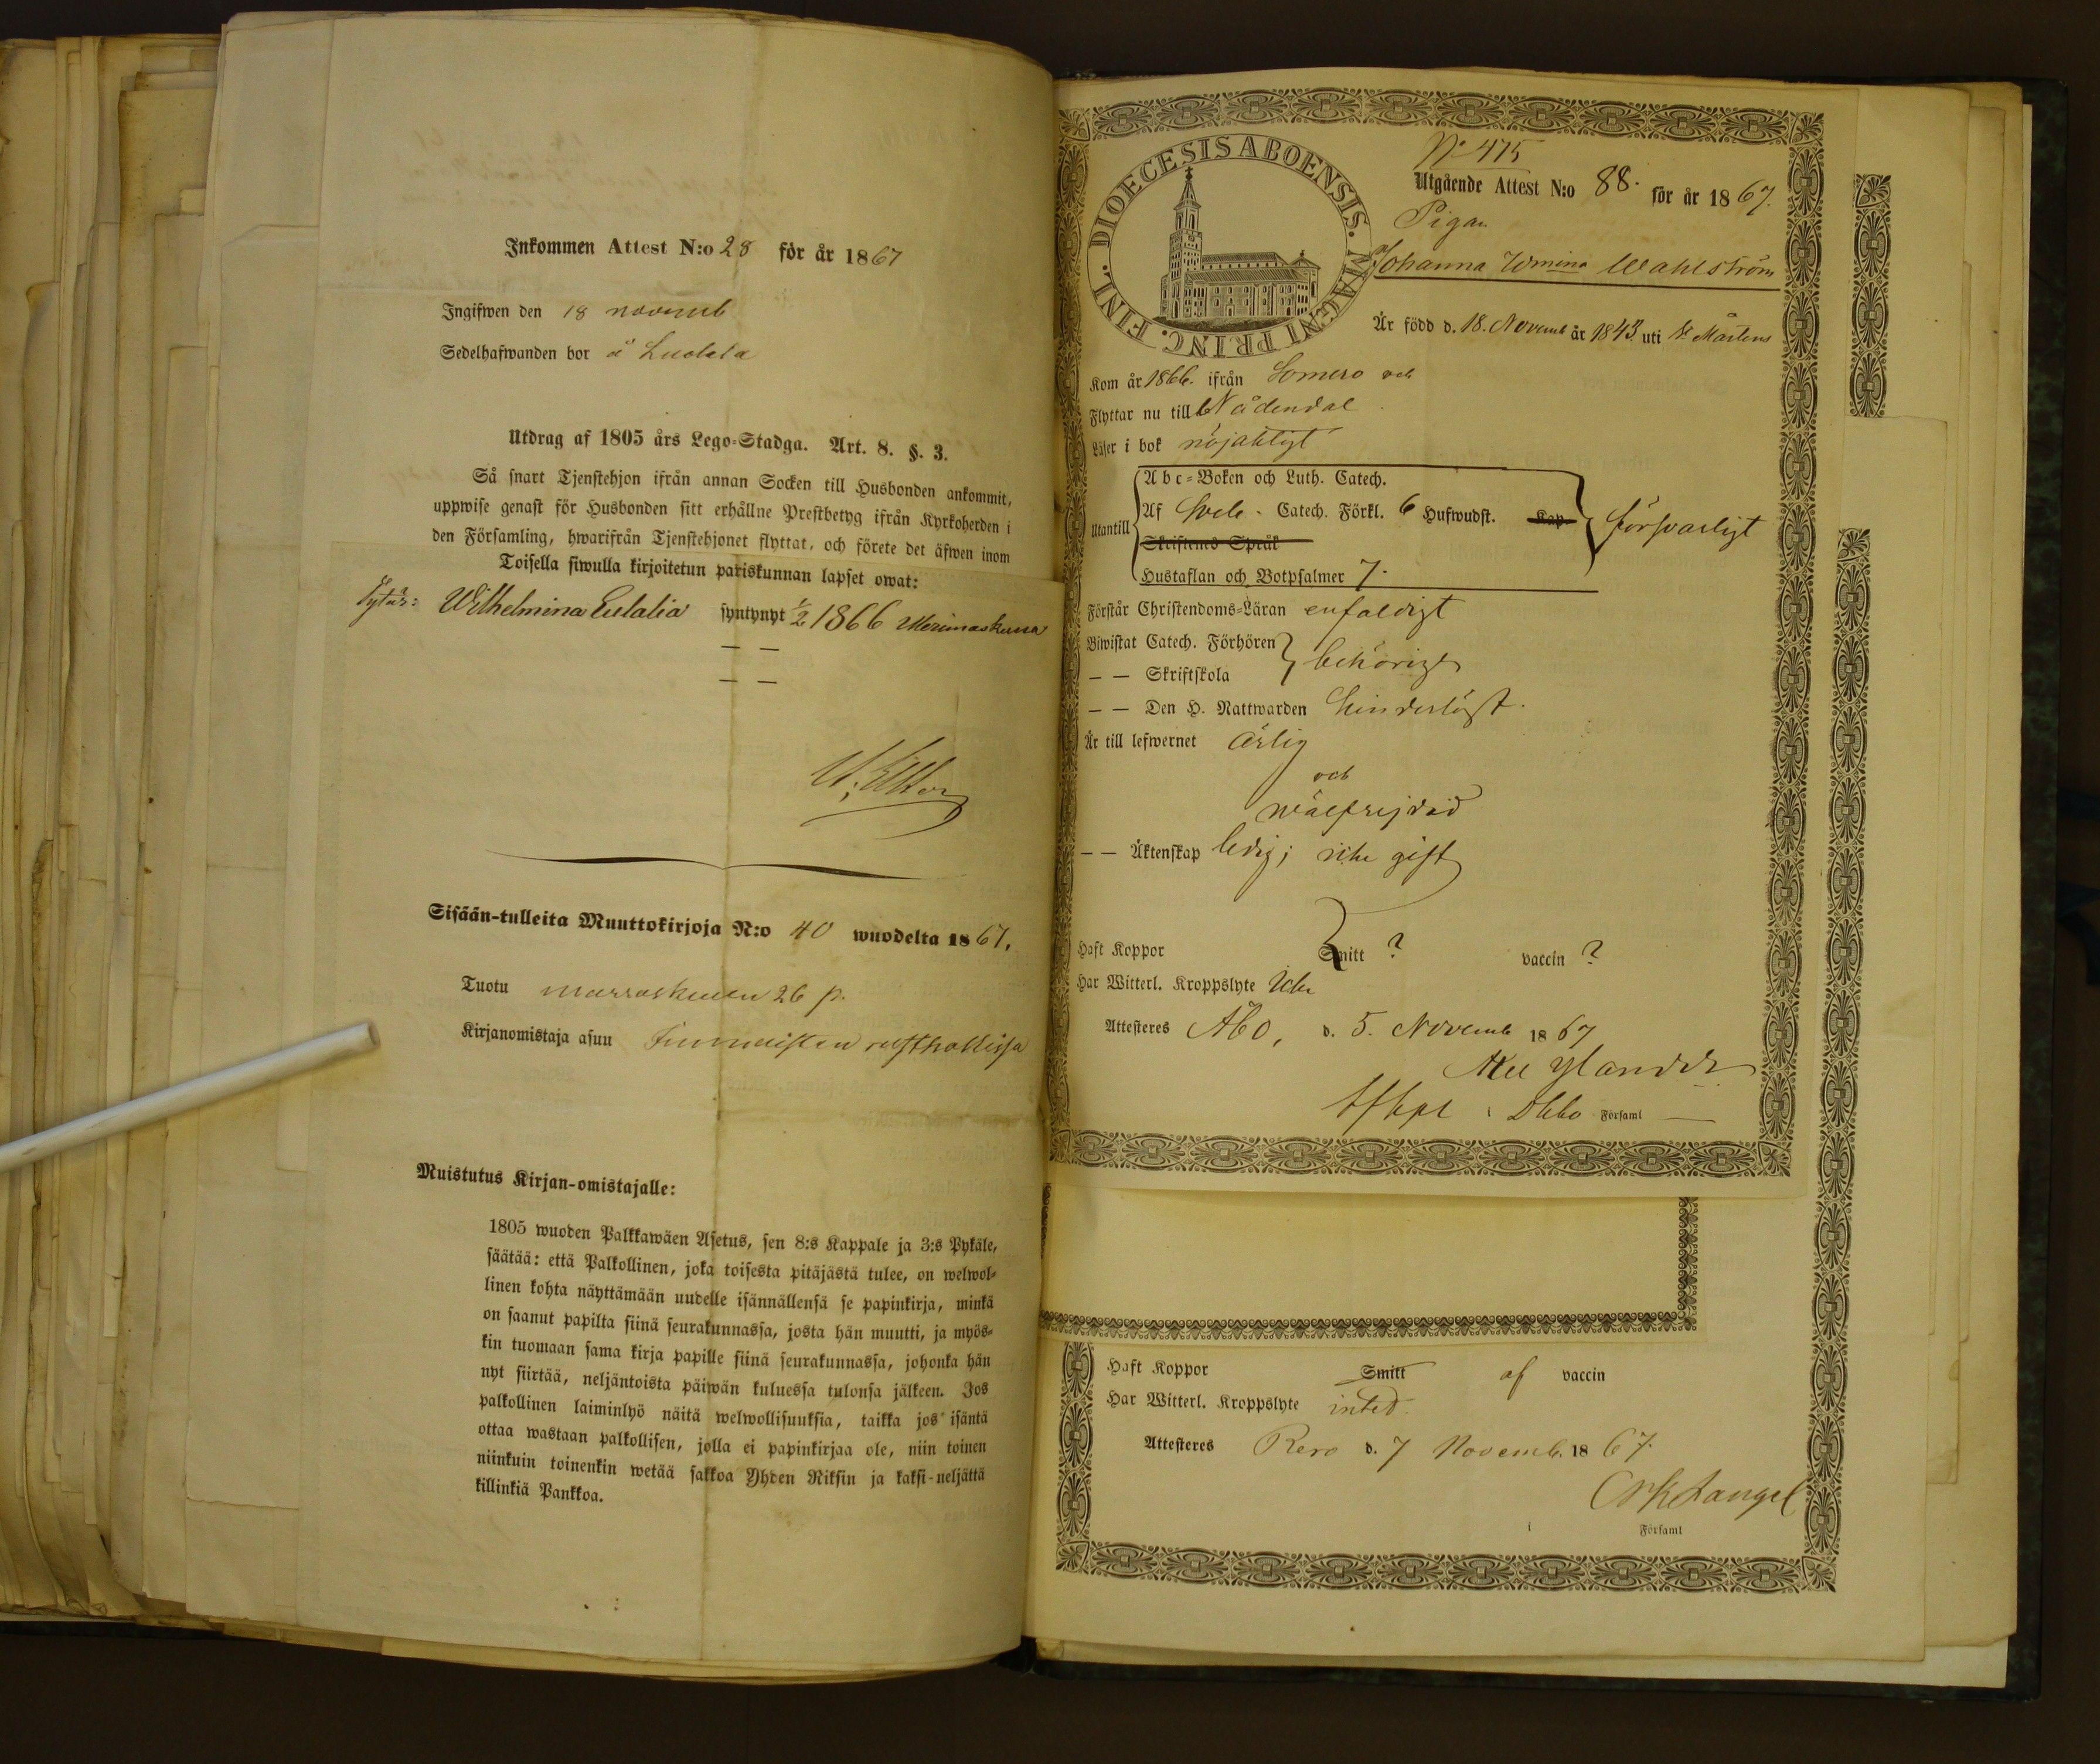 Inkommen Attest N:o 28 för år 1867
Ingifwen den 18 novemb
Sedelhafwanden bor å Luolala
Utdrag af 1805 års Lego-Stadga. Art. 8. §. 3.
Så snart Tjenstehjon ifrån annan Socken till Husbonden ankommit,
uppwise genast för Husbonden sitt erhållne Prestbetyg ifrån Kyrkoherden i
den Församling, hwarifrån Tjenstehjonet flyttat, och förete det äfwen inom
Toisella siwulla kirjoitetun pariskunnan lapset owat:
Tytär: Wilhelmina Eulalia syntynyt ½ 1866 Merimaskussa
— —
— —
Sisään-tulleita Muuttokirjoja N:o 40 wuodelta 1867.
Tuotu marraskuun 26 p.
Kirjanomistaja asuu rusthollissa
Muistutus Kirjan-omistajalle:
1805 wuoden Palkkawäen Asetus, sen 8:s Kappale ja 3:s Pykäle,
säätää: että Palkollinen, joka toisesta pitäjästä tulee, on welwol-
linen kohta näyttämään uudelle isännällensä se papinkirja, minkä
on saanut papilta siinä seurakunnassa, josta hän muutti, ja myös-
kin tuomaan sama kirja papille siinä seurakunnassa, johonka hän
nyt siirtää, neljäntoista päiwän kuluessa tulonsa jälkeen. Jos
palkollinen laiminlyö näitä welwollisuuksia, taikka jos isäntä
ottaa wastaan palkollisen, jolla ei papinkirjaa ole, niin toinen
niinkuin toinenkin wetää sakkoa Yhden Riksin ja kaksi-neljättä
killinkiä Pankkoa.
DIOECESIS ABOENSIS. MAGNI PRINC. FINL.
No 475
Utgående Attest N:o 88. för år 1867.
Pigan
Johanna Wmina Wahlström
Är född d. 18. Novemb år 1843 uti St Mårtens
Kom år 1866. ifrån Somero och
Flyttar nu till Nådendal
Läser i bok nöjaktigt
Abc-Boken och Luth. Catech.
Utantill Af Sveb. Catech. Förkl. 6 Hufwudst. Kap. försvarligt
Skriftenes Språk
Hustaflan och Botpsalmer 7.
Förstår Christendoms-Läran enfaldigt
Biwistat Catech. Förhören
— — Skriftskola behörigt
— — Den H. Nattwarden hinderlöst.
Är till lefwernet ärlig
och
wälfrejdad
— — Äktenskap ledig; icke gift
Haft Koppor Smitt ? vaccin ?
Har Witterl. Kroppslyte Utan
Attesteres Åbo, d. 5. Novemb 1867
i Församl
Haft Koppor Smitt af vaccin
Har Witterl. Kroppslyte intet
Attesteres Reso d. 7 Novemb. 1867.
i Församl